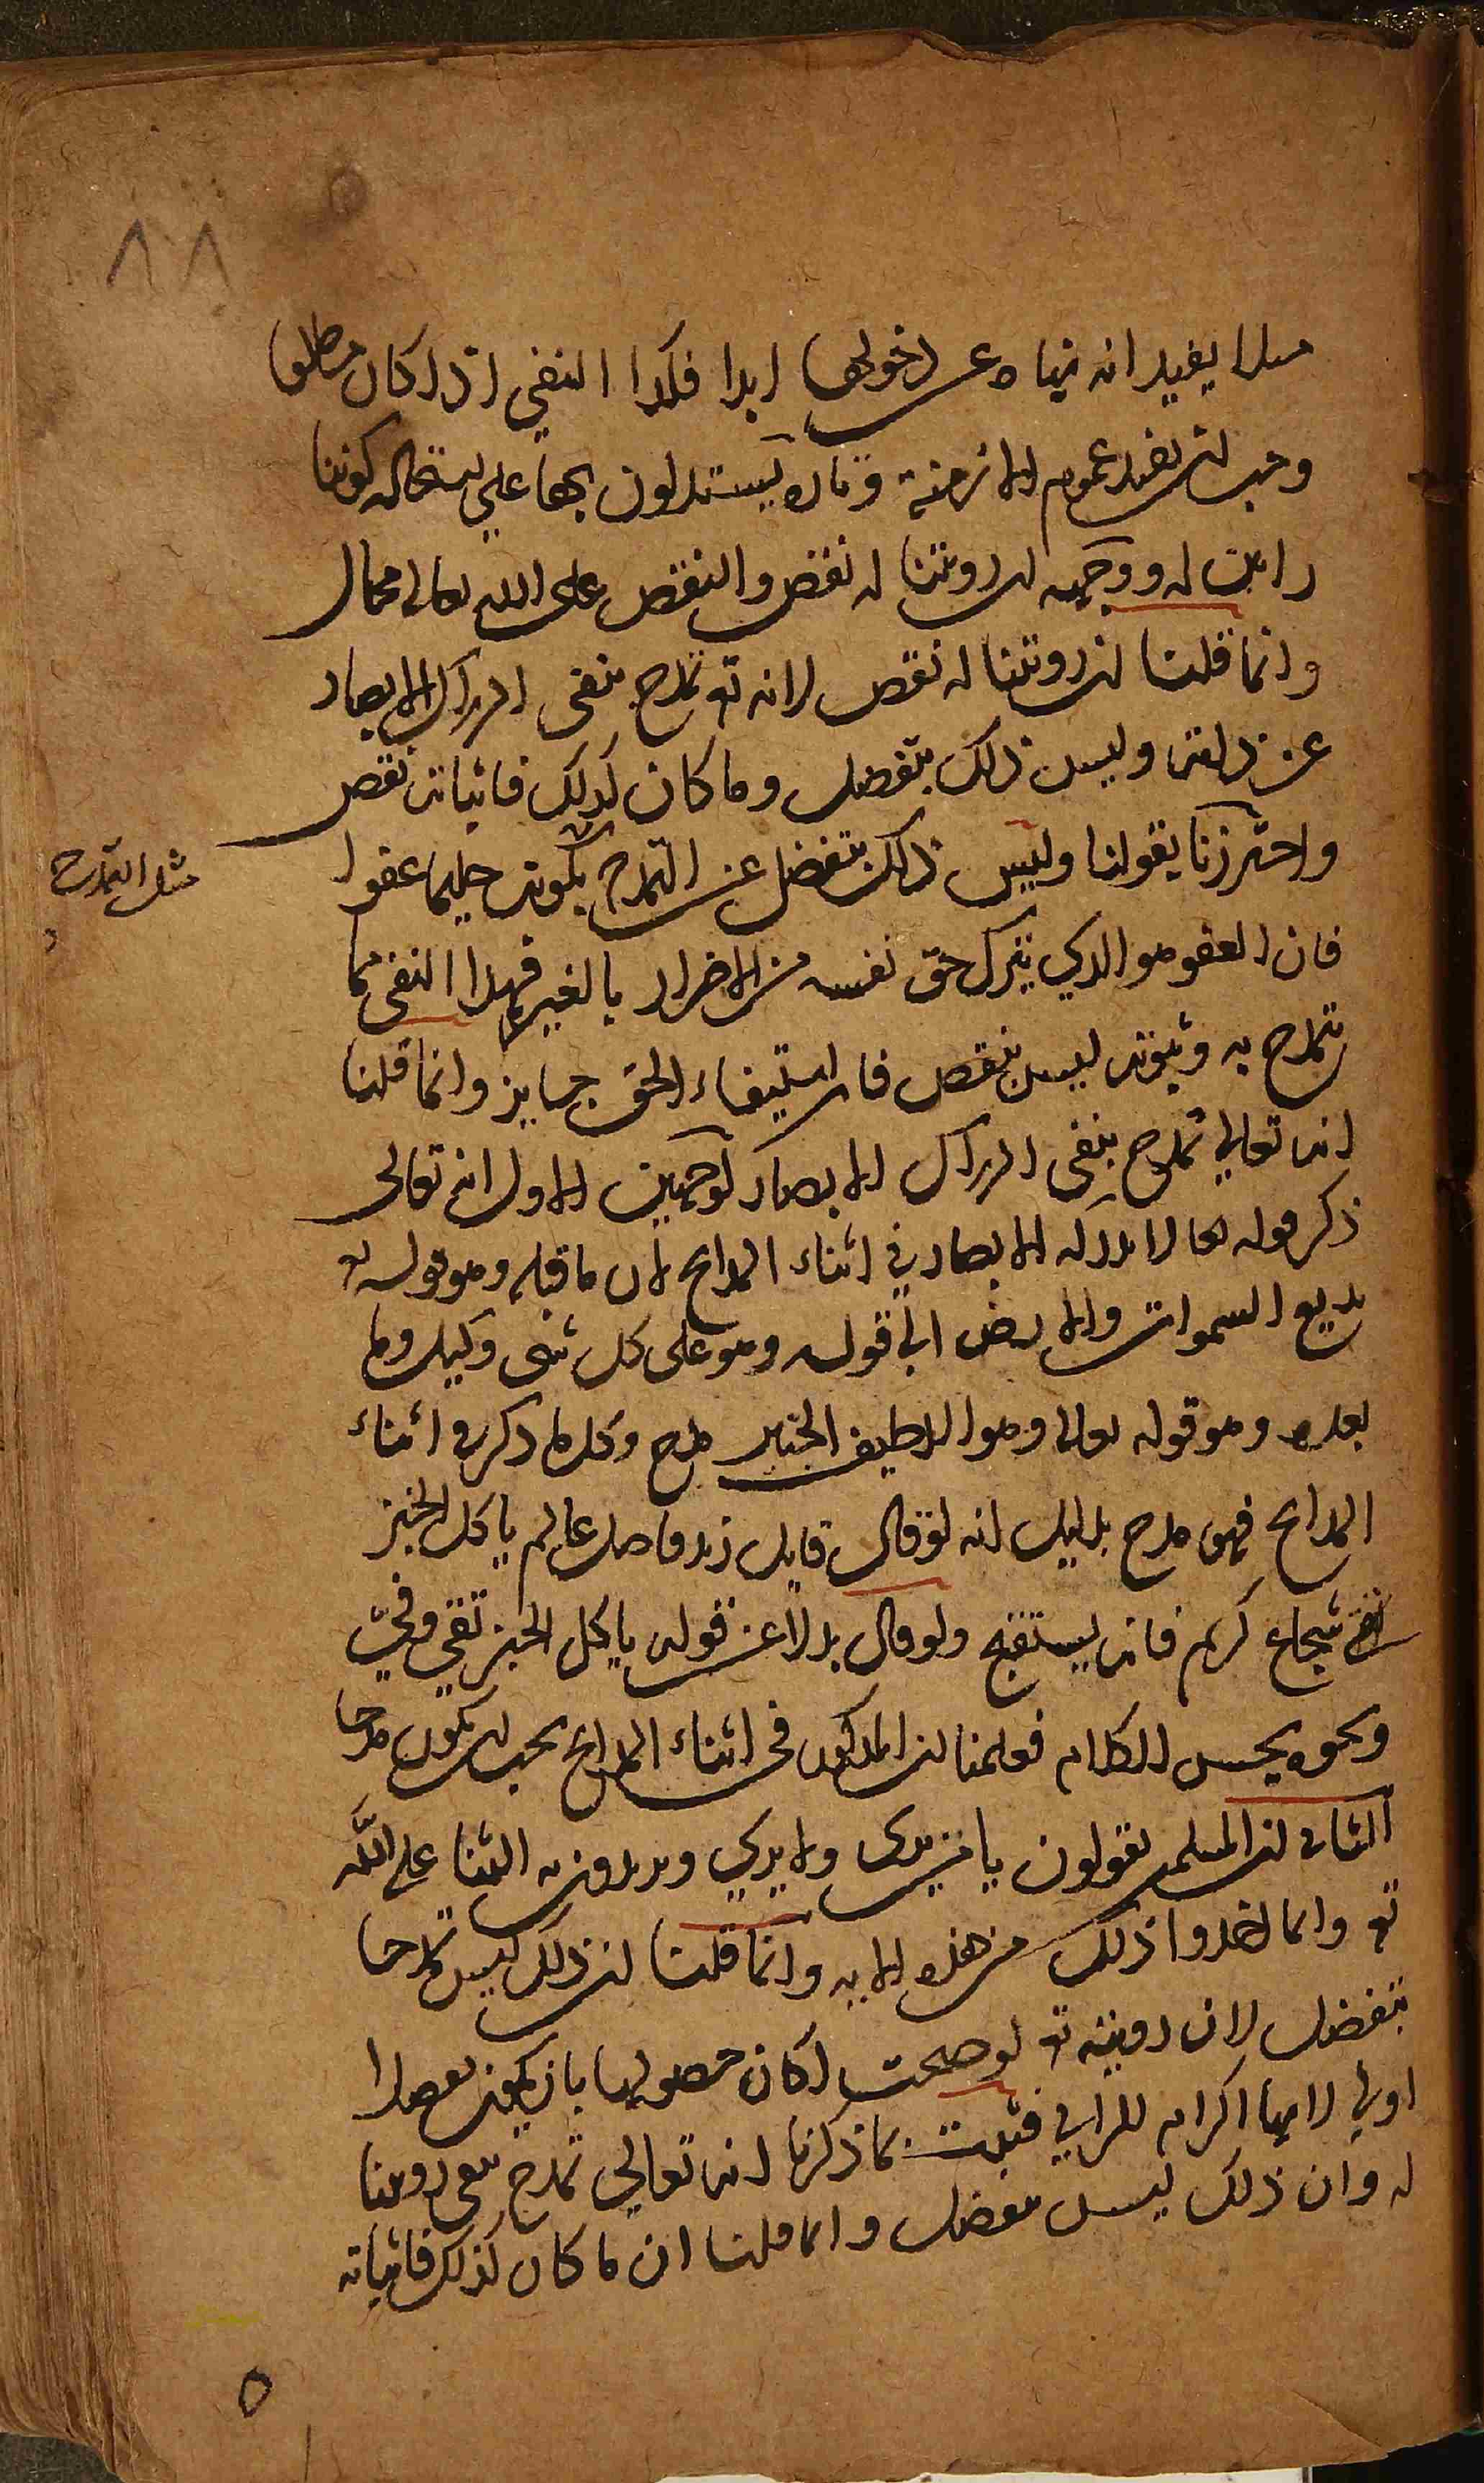 ٨٨
مثلا يفيد انه نهاه عن دخولها ابدا فكذا النفي اذا كان مطلقا
وجب ان يفيد عموم الازمنة وتارة يستدلون بها على استحالة كوننا
رائين له ووجهه ان رويتنا له نقص والنقص على الله تعالى محال
وانما قلنا ان رويتنا له نقص لانه تع تمدح بنفى ادراك الابصار
عن ذاته وليس ذلك بتفضل وما كان كذلك فاثباته نقص
واحترزنا بقولنا وليس ذلك بتفضل عن التمدح بكونه حليما عفوا
مثل التمدح
فان العفو هو الذي يترك حق نفسه من الاضرار بالغير فهذا النفى مما
يتمدح به وثبوته ليس بنقص فان استيفاء الحق جايز وانما قلنا
انه تعالى تمدح بنفى ادراك الابصار لوجهين الاول انه تعالى
ذكر قوله تعالى لا تدركه الابصار في اثناء المدايح لان ما قبله وهو قوله تع
بديع السموات والارض الى قوله وهو على كل شى وكيل وما
بعده وهو قوله تعالى وهو اللطيف الخبير مدح وكل ما ذكر في اثناء
المدايح فهو مدح بدليل انه لو قال قايل زيد فاضل عالم ياكل الخبز
شجاع كريم فانه يستقبح ولو قال بدلا عن قوله ياكل الخبز تقي وفي
ونحوه يحسن الكلام فعلمنا ان المذكور في اثناء المدايح يجب ان يكون مدحا
الثاني ان المسلمين يقولون يا من يرى ولا يرى ويريدون به الثنا على الله
تع وانما اخذوا ذلك من هذه الاية وانما قلنا ان ذلك ليس تمدحا
بتفضل لان رويته تع لو صحت لكان حصولها بان يكون تفضلا
اولى لانها اكرام للرائي فثبت بما ذكرنا انه تعالى تمدح بنفى رويتنا
له وان ذلك ليس بتفضل وانما قلنا ان ما كان كذلك فاثباته